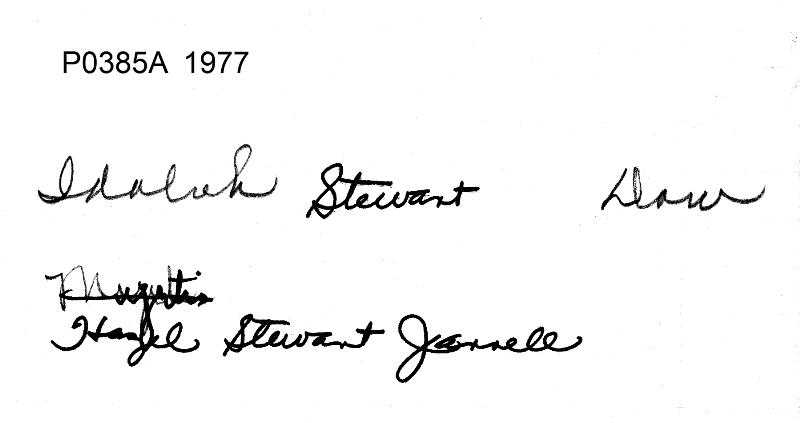 P0385A 1977
Idaleah Stewart Dow
Hazel Stewart Jarrell